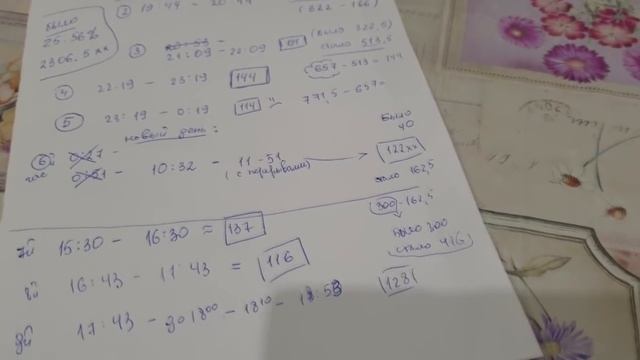 ② 19:44 – 20:44 (322 – 166)
Было
25.56%
2306.5 хх
③ 21:09 – 22:09 (было 322,5)
стало 513,5
④ 22:19 – 23:19 144 657 – 513 = 144
⑤ 23:19 – 0:19 114 771,5 – 657 =
новый день:
6й час 10:32 – 11-51 (с перерывами) 122хх
Было 40
стало 162,5
300 – 162,5
7й 15:30 – 16:30 = 137
было 300
стало 416
8й 16:43 – 17:43 = 116
9й 17:43 – до 18⁰⁰ – 18¹⁰ – 18:53 128